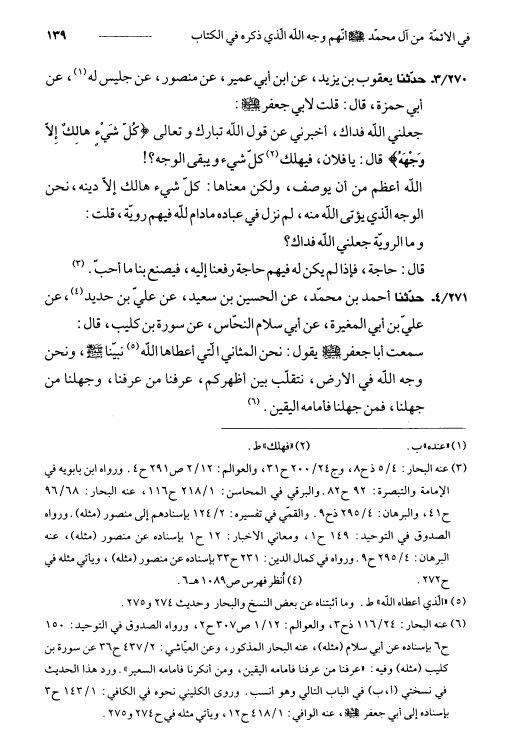 في الائمّة من آل محمّد ﷺ أنّهم وجه اللّه الّذي ذكره في الكتاب ١٣٩
٣/٢٧٠. حدّثنا يعقوب بن يزيد، عن ابن أبي عمير، عن منصور، عن جليس له(١)، عن
أبي حمزة، قال: قلت لابي جعفر ﷺ:
جعلني اللّه فداك، أخبرني عن قول اللّه تبارك و تعالى ﴿كُلّ شَيْءٍ هالِكٌ إلاّ
وَجْهَهُ﴾ قال: يا فلان، فيهلك(٢) كلّ شيء و يبقى الوجه؟!
اللّه أعظم من أن يوصف، ولكن معناها: كلّ شيء هالك إلاّ دينه، نحن
الوجه الّذي يؤتى اللّه منه، لم نزل في عباده مادام للّه فيهم رويّة، قلت:
و ما الرويّة جعلني اللّه فداك؟
قال: حاجة، فإذا لم يكن له فيهم حاجة رفعنا إليه، فيصنع بنا ما أحبّ. (٣)
٤/٢٧١. حدّثنا أحمد بن محمّد، عن الحسين بن سعيد، عن عليّ بن حديد(٤)، عن
عليّ بن أبي المغيرة، عن أبي سلام النحّاس، عن سورة بن كليب، قال:
سمعت أبا جعفر ﷺ يقول: نحن المثاني الّتي أعطاها اللّه(٥) نبيّنا ﷺ، ونحن
وجه اللّه في الأرض، نتقلّب بين أظهركم، عرفنا من عرفنا، وجهلنا من
جهلنا، فمن جهلنا فأمامه اليقين. (٦)
(١) «عنده» ب. (٢) «فهلك» ط.
(٣) عنه البحار: ٥/٤ ذح٨، وج٢٠٠/٢٤ ح٣١، والعوالم: ٢/١٢ ص٢٩١ ح٤. ورواه ابن بابويه في
الإمامة والتبصرة: ٩٢ ح٨٢. والبرقي في المحاسن: ٢١٨/١ ح١١٦، عنه البحار: ٩٦/٦٨
ح٤١، والبرهان: ٢٩٥/٤ ذح٩. والقمّي في تفسيره: ١٢٤/٢ بإسنادهم إلى منصور (مثله). ورواه
الصدوق في التوحيد: ١٤٩ ح١، ومعاني الاخبار: ١٢ ح١ بإسناده عن منصور (مثله)، عنه
البرهان: ٢٩٥/٤ ح٩. ورواه في كمال الدين: ٢٣١ ح٣٣ بإسناده عن منصور (مثله)، ويأتي مثله في
ح٢٧٢. (٤) اُنظر فهرس ص١٠٨٩ هـ٦.
(٥) «الّذي أعطاه اللّه» ط. وما أثبتناه عن بعض النسخ والبحار وحديث ٢٧٤ و٢٧٥.
(٦) عنه البحار: ١١٦/٢٤ ذح٣، والعوالم: ١/١٢ ص٣٠٧ ح٢، ورواه الصدوق في التوحيد: ١٥٠
ح٦ بإسناده عن أبي سلام (مثله)، عنه البحار المذكور، وعن العيّاشي: ٤٣٧/٢ ح٣٦ عن سورة بن
كليب (مثله) وفيه: «عرفنا من عرفنا فأمامه اليقين، ومن أنكرنا فأمامه السعير». ورد هذا الحديث
في نسختي (أ،ب) في الباب التالي وهو انسب. وروى الكليني نحوه في الكافي: ١٤٣/١ ح٣
بإسناده إلى أبي جعفر ﷺ، عنه الوافي: ٤١٨/١ ح١٢، ويأتي مثله في ح٢٧٤ و٢٧٥.